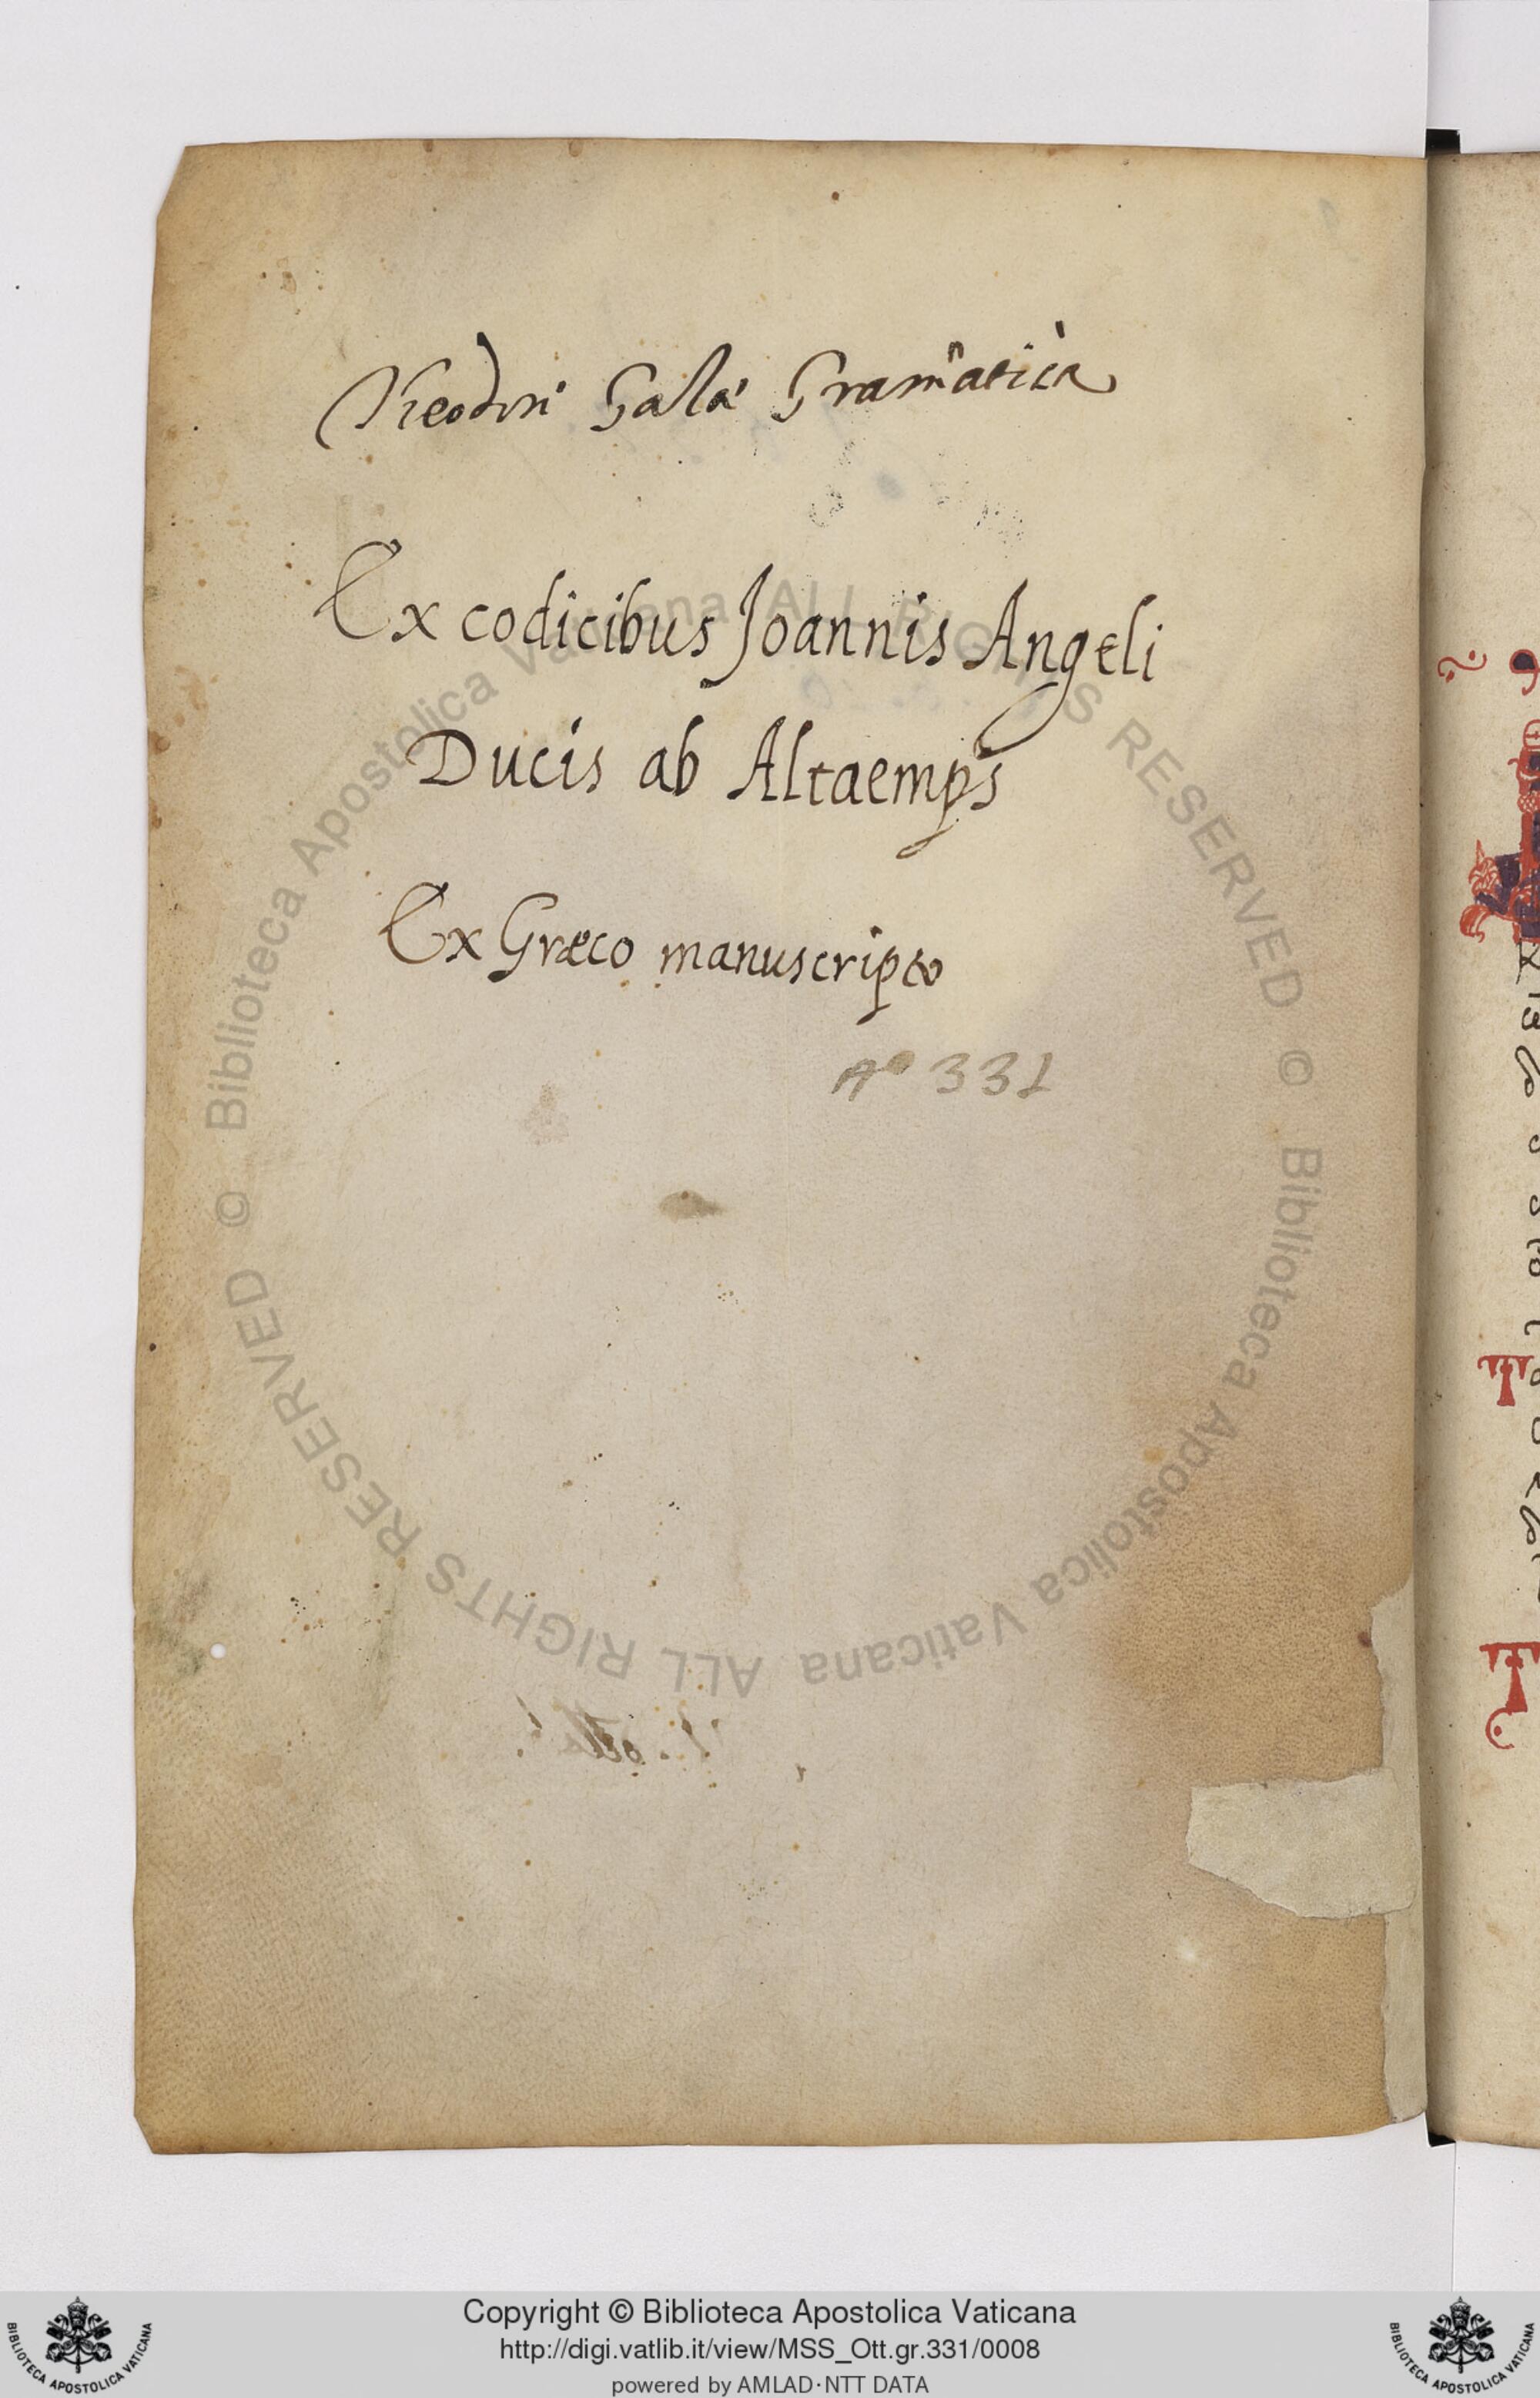 Theodori Gazae Gram̃atica
Ex codicibus Joannis Angeli
Ducis ab Altaemps
Ex Græco manuscripto
331
© Biblioteca Apostolica Vaticana ALL RIGHTS RESERVED © Biblioteca Apostolica Vaticana ALL RIGHTS RESERVED
Copyright © Biblioteca Apostolica Vaticana
http://digi.vatlib.it/view/MSS_Ott.gr.331/0008
powered by AMLAD·NTT DATA
BIBLIOTECA APOSTOLICA VATICANA
BIBLIOTECA APOSTOLICA VATICANA